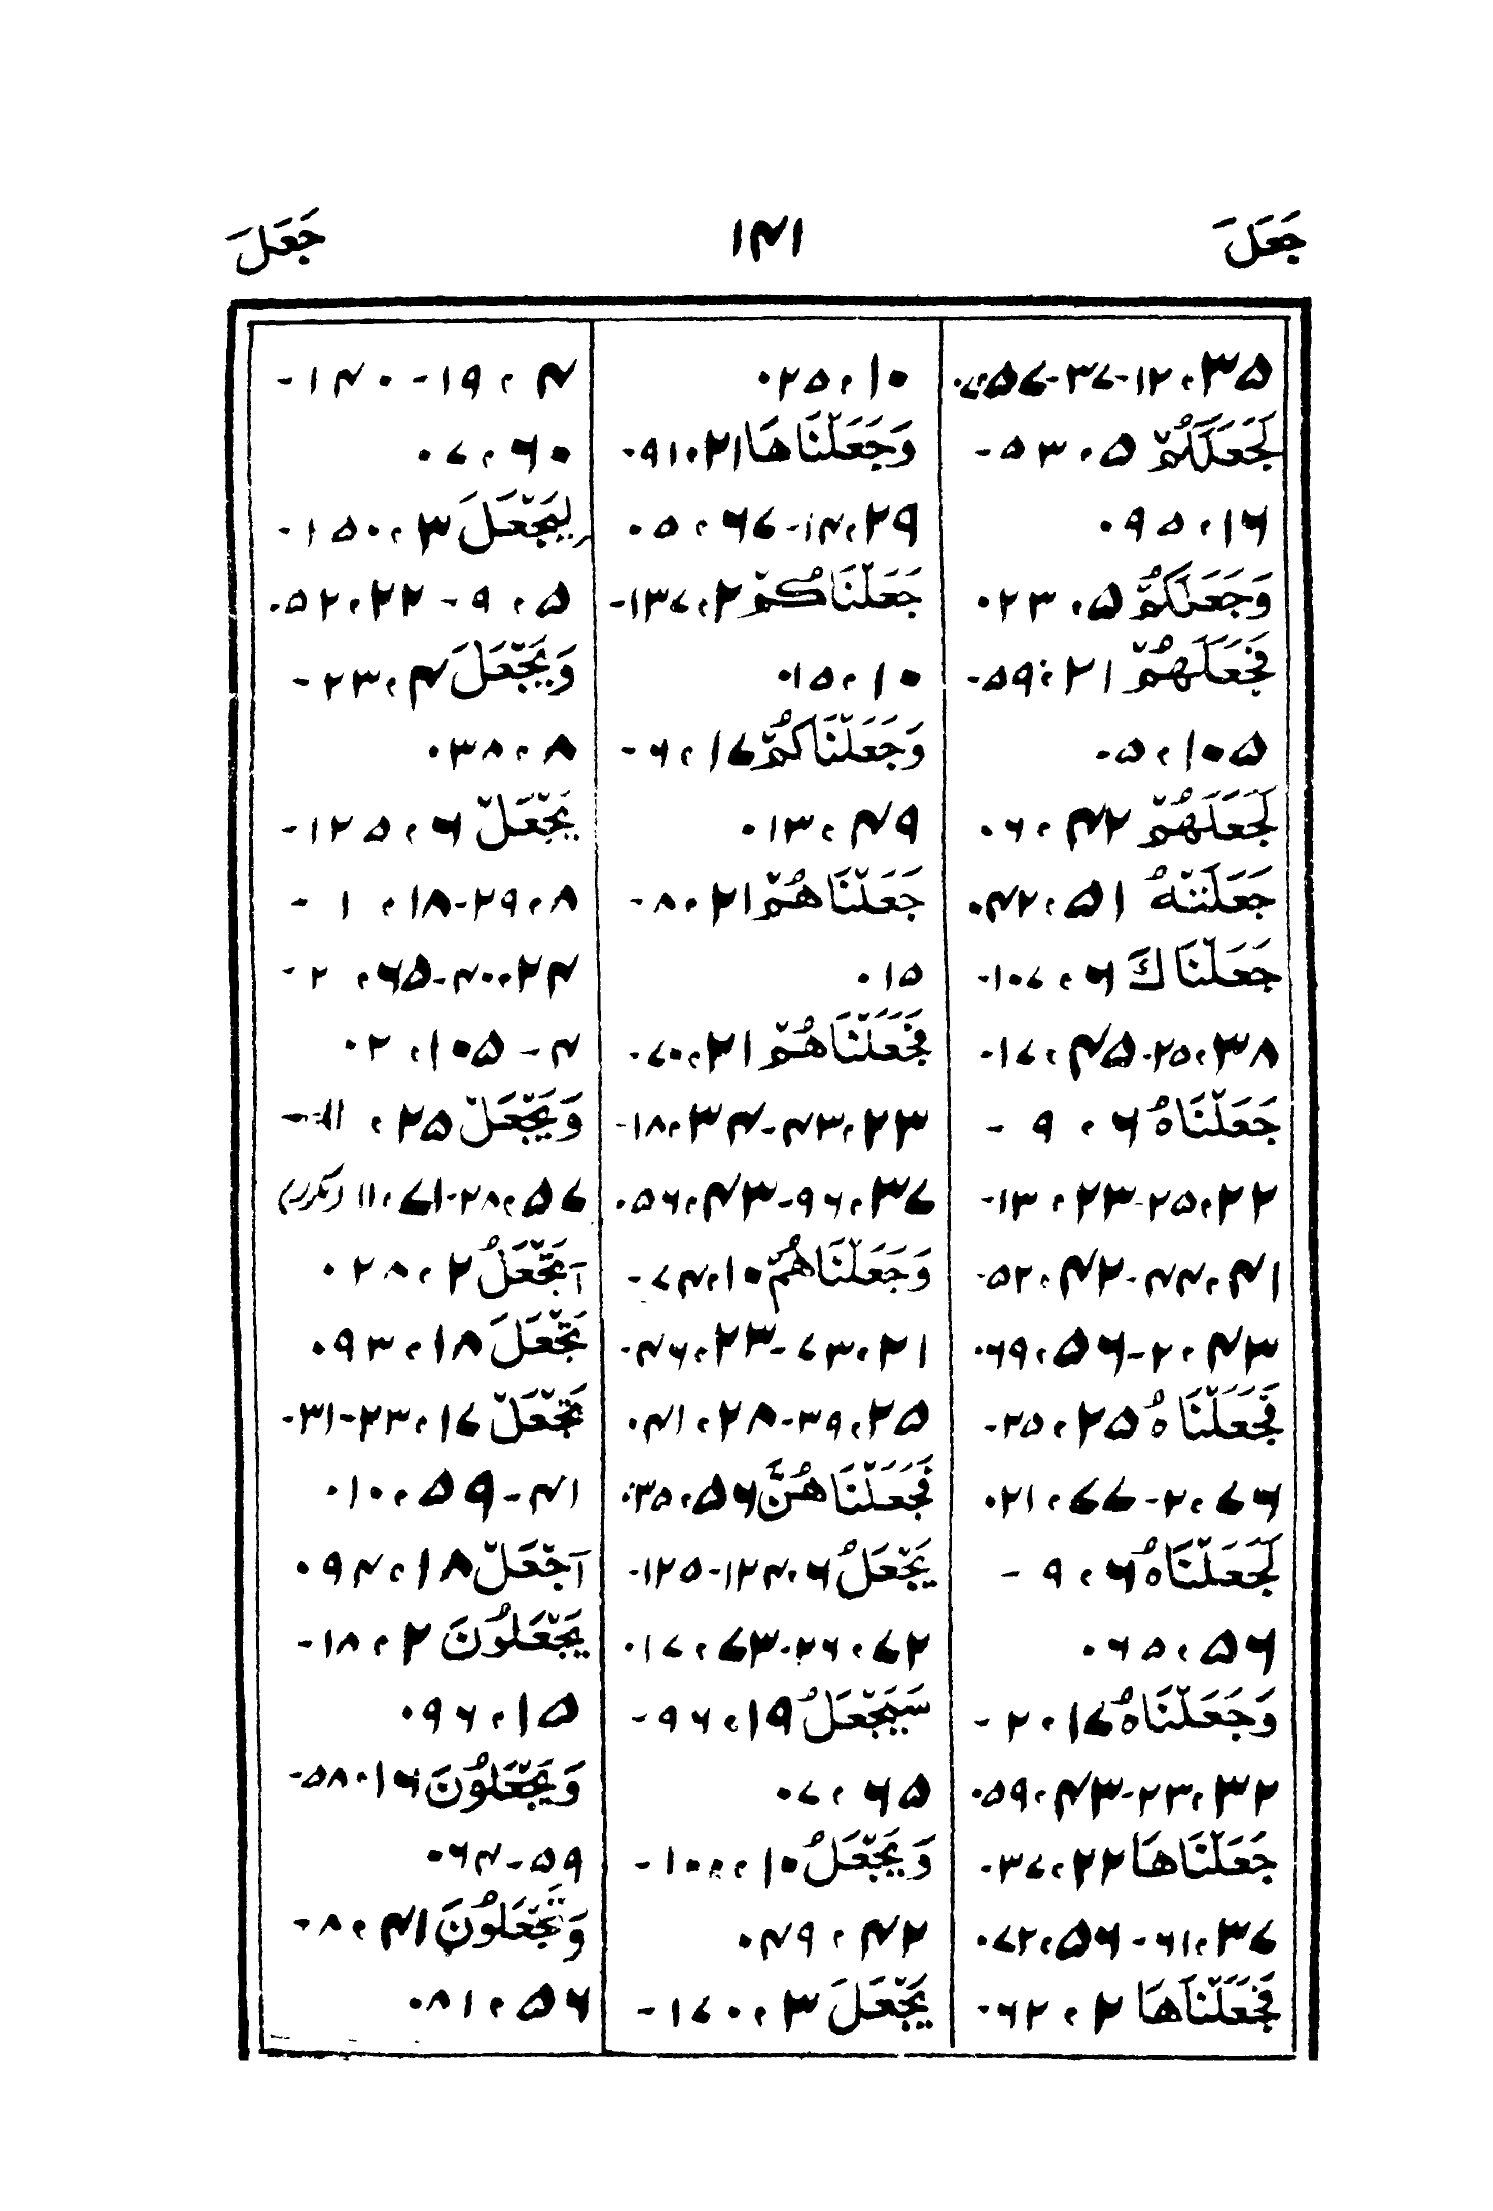 جَعَلَ
۱۴۱
جَعَلَ
۳۵، ۱۲-۳۷-۵۷، ۷.
لَجَعَلَكُمْ ۵، ۵۳-
۱۶، ۹۵.
وَجَعَلَكُمْ ۵، ۲۳.
فَجَعَلَهُمْ ۲۱، ۵۹-
۱۰۵، ۵-
لَجَعَلَهُمْ ۴۲، ۶.
جَعَلَتْهُ ۵۱، ۴۲.
جَعَلْنَاكَ ۶، ۱۰۷-
۳۸، ۲۵-۴۵، ۱۷-
جَعَلْنَاهُ ۶، ۹-
۲۲، ۲۵-۲۳، ۱۳-
۴۱، ۴۴-۴۲، ۵۲-
۴۳، ۲-۵۶، ۶۹.
فَجَعَلْنَاهُ ۲۵، ۲۵-
۷۶، ۲-۷۷، ۲۱.
لَجَعَلْنَاهُ ۶، ۹-
۵۶، ۶۵.
وَجَعَلْنَاهُ ۱۷، ۲-
۳۲، ۲۳-۴۳، ۵۹.
جَعَلْنَاهَا ۲۲، ۳۷.
۳۷، ۶۱-۵۶، ۷۲.
فَجَعَلْنَاهَا ۲، ۶۲.
۱۰، ۲۵.
وَجَعَلْنَاهَا ۲۱، ۹۱-
۲۹، ۱۴-۶۷، ۵.
جَعَلْنَاكُمْ ۲، ۱۳۷-
۱۰، ۱۵.
وَجَعَلْنَاكُمْ ۱۷، ۶-
۴۹، ۱۳.
جَعَلْنَاهُمْ ۲۱، ۸-
۱۵.
فَجَعَلْنَاهُمْ ۲۱، ۷۰-
۲۳، ۴۳-۳۴، ۱۸-
۳۷، ۹۶-۴۳، ۵۶.
وَجَعَلْنَاهُمْ ۱۰، ۷۴-
۲۱، ۷۳-۲۳، ۴۶-
۲۵، ۳۹-۲۸، ۴۱.
فَجَعَلْنَاهُنَّ ۵۶، ۳۵.
يَجْعَلُ ۶، ۱۲۴-۱۲۵-
۷۲، ۲۶-۷۳، ۱۷.
سَيَجْعَلُ ۱۹، ۹۶-
۶۵، ۷.
وَيَجْعَلُ ۱۰، ۱۰۰-
۴۲، ۴۹.
يَجْعَلَ ۳، ۱۷۰-
۴، ۱۹-۱۴۰-
۶۰، ۷.
لِيَجْعَلَ ۳، ۱۵۰-
۵، ۹-۲۲، ۵۲.
وَيَجْعَلَ ۴، ۲۳-
۸، ۳۸.
يَجْعَلْ ۶، ۱۲۵-
۸، ۲۹-۱۸، ۱-
۲۴، ۴۰-۶۵، ۲-
۴-۱۰۵، ۲.
وَيَجْعَلْ ۲۵،
۵۷، ۲۸-۷۱، ۱۱ (مکرر)
اَتَجْعَلُ ۲، ۲۸.
تَجْعَلَ ۱۸، ۹۳.
تَجْعَلْ ۱۷، ۲۳-۳۱-
۴۱-۵۹، ۱۰.
اَجْعَلْ ۱۸، ۹۴.
يَجْعَلُونَ ۲، ۱۸-
۱۵، ۹۶.
وَيَجْعَلُونَ ۱۶، ۵۸-
۵۹-۶۴.
وَتَجْعَلُونَ ۴۱، ۸-
۵۶، ۸۱.